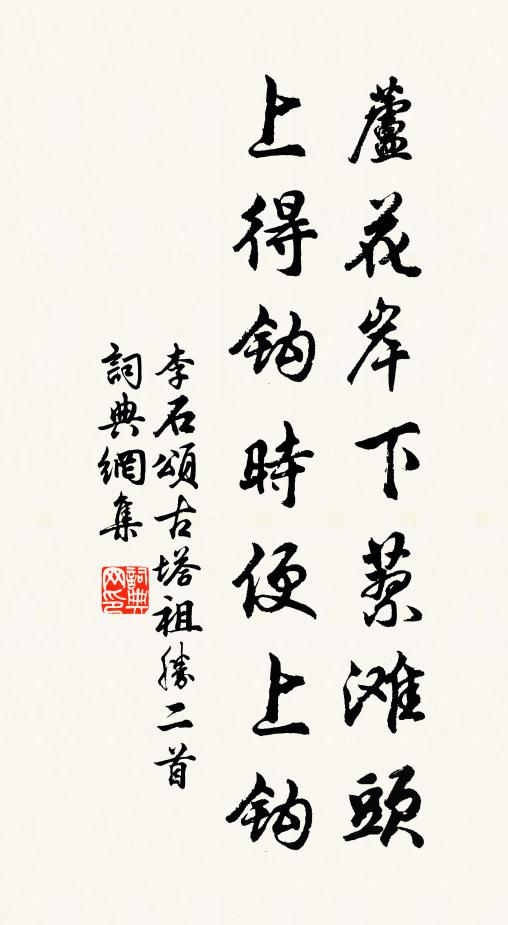 蘆花岸下蓼滩頭
上得鈎時便上鈎
李石頌古塔祖勝二首
詞典網集
詞典網印